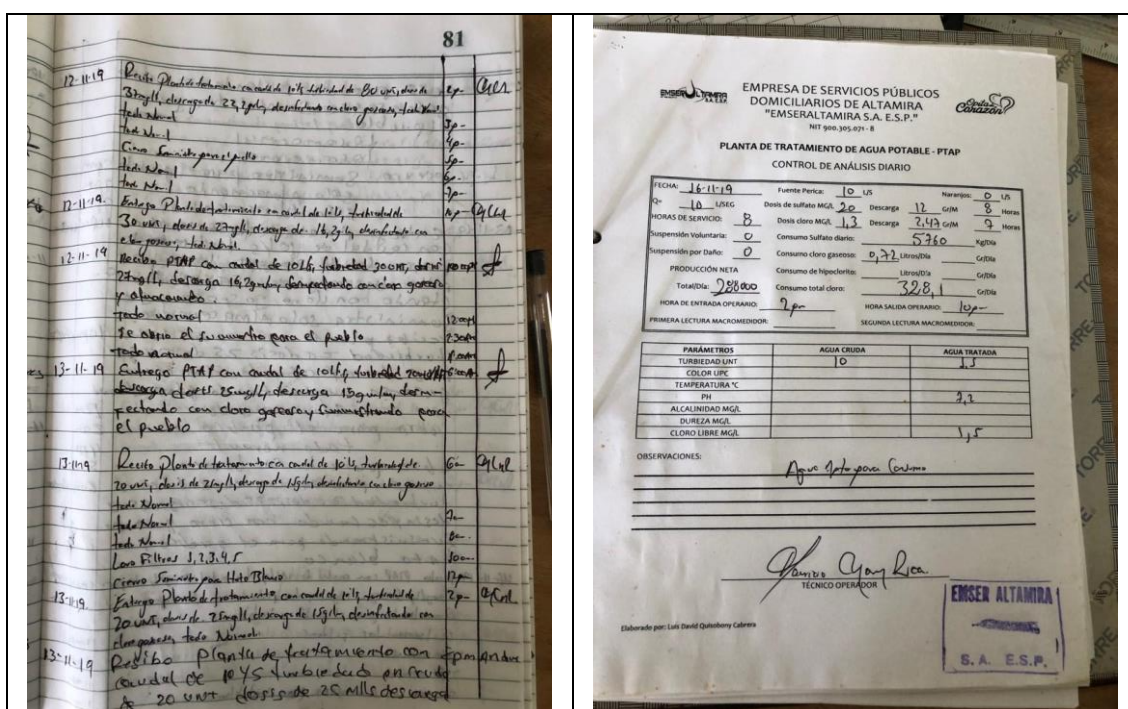 81
12-11-19 Recibo Planta de tratamiento con caudal de 10 l/s turbiedad de 80 UNT, dosis de 2p-
37 mg/l, descarga de 22,2 g/m, desinfectando con cloro gaseoso, todo Normal
todo Normal 3p-
todo Normal 4p-
Cierro Suministro para el pueblo 5p-
todo Normal 6p-
todo Normal 7p-
12-11-19. Entrego Planta de tratamiento con caudal de 10 l/s, turbiedad de 10p-
30 UNT, dosis de 27 mg/l, descarga de 16,2 g/m, desinfectando con
cloro gaseoso, todo Normal.
12-11-19 Recibo PTAP con caudal de 10 L/s, turbiedad 30 UNT, dosis 10:00 pm
27 mg/l, descarga 16,2 gm/m, desinfectando con cloro gaseoso
y almacenando.
todo normal 12:00
Se abrio el suministro para el pueblo 2:30 am
todo normal
13-11-19 Entrego PTAP con caudal de 10 L/s, turbiedad 20 UNT 6:00 am
dosis 25 mg/l, descarga 15 gm/m, desin-
fectando con cloro gaseoso y suministrando para
el pueblo
13-11-19 Recibo Planta de tratamiento con caudal de 10 l/s, turbiedad de 6a-
20 UNT, dosis de 25 mg/l, descarga de 15 g/m, desinfectando con cloro gaseoso
todo Normal
todo Normal 7a-
todo Normal 8a-
Lavo Filtros 1,2,3,4,5 10a-
Cierro Suministro para Hato Blanco 12p-
13-11-19. Entrego Planta de tratamiento con caudal de 10 l/s, turbiedad de 2p-
20 UNT, dosis de 25 mg/l, descarga de 15 g/m, desinfectando con
cloro gaseoso, todo Normal.
13-11-19 Recibo planta de tratamiento con 2pm Andres
caudal de 10 L/S turbiedad en cruda
de 20 UNT dosis de 25 Mlls descarga
EMSERALTAMIRA
S.A E.S.P
EMPRESA DE SERVICIOS PÚBLICOS
DOMICILIARIOS DE ALTAMIRA
"EMSERALTAMIRA S.A. E.S.P."
NIT 900.305.071 - 8
Corazón
PLANTA DE TRATAMIENTO DE AGUA POTABLE - PTAP
CONTROL DE ANÁLISIS DIARIO
FECHA: 16-11-19 Fuente Perica: 10 L/S Naranjos: 0 L/S
Q= 10 L/SEG Dosis de sulfato MG/L 20 Descarga 12 Gr/M 8 Horas
HORAS DE SERVICIO: 8 Dosis cloro MG/L 1,3 Descarga 2,47 Gr/M 9 Horas
Suspensión Voluntaria: 0 Consumo Sulfato diario: 5760 Kg/Día
Suspensión por Daño: 0 Consumo cloro gaseoso: 0,72 Litros/Día Gr/Día
PRODUCCIÓN NETA Consumo de hipoclorito: Litros/Día Gr/Día
Total/Día: 288000 Consumo total cloro: 328,1 Gr/Día
HORA DE ENTRADA OPERARIO: 2p- HORA SALIDA OPERARIO: 10p-
PRIMERA LECTURA MACROMEDIDOR: SEGUNDA LECTURA MACROMEDIDOR:
PARÁMETROS AGUA CRUDA AGUA TRATADA
TURBIEDAD UNT 10 1,5
COLOR UPC
TEMPERATURA °C
PH 7,2
ALCALINIDAD MG/L
DUREZA MG/L
CLORO LIBRE MG/L 1,5
OBSERVACIONES:
Agua Apta para Consumo
TÉCNICO OPERADOR
Elaborado por: Luis David Quinobony Cabrera
EMSER ALTAMIRA
S. A. E.S.P.